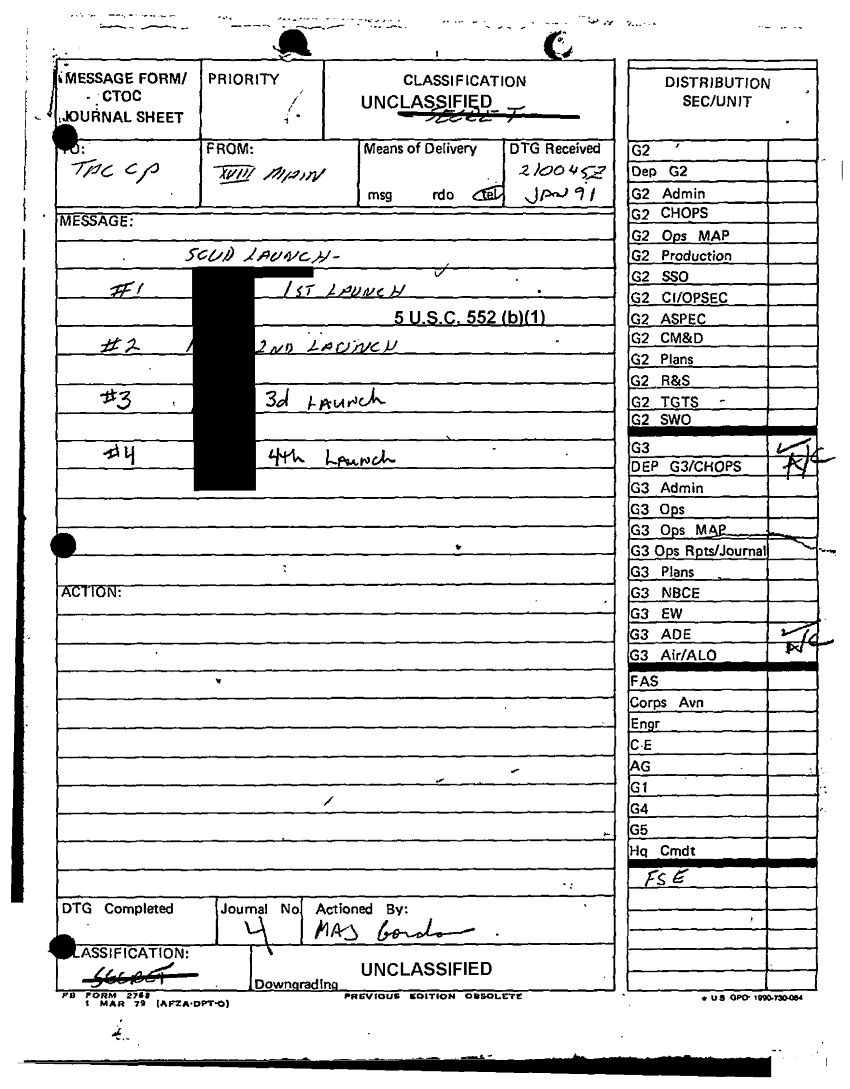 MESSAGE FORM/
CTOC
JOURNAL SHEET
PRIORITY
CLASSIFICATION
UNCLASSIFIED
SECRET
TO:
TAC CP
FROM:
XVIII MAIN
Means of Delivery
msg rdo tel
DTG Received
210045Z
JAN 91
MESSAGE:
SCUD LAUNCH-
#1 1ST LAUNCH
5 U.S.C. 552 (b)(1)
#2 2ND LAUNCH
#3 3d LAUNCH
#4 4th LAUNCH
ACTION:
DTG Completed
Journal No
4
Actioned By:
MAJ Gordon
CLASSIFICATION:
SECRET
UNCLASSIFIED
Downgrading
FB FORM 2768
1 MAR 79 (AFZA-DPT-O)
PREVIOUS EDITION OBSOLETE
DISTRIBUTION
SEC/UNIT
G2
Dep G2
G2 Admin
G2 CHOPS
G2 Ops MAP
G2 Production
G2 SSO
G2 CI/OPSEC
G2 ASPEC
G2 CM&D
G2 Plans
G2 R&S
G2 TGTS
G2 SWO
G3
DEP G3/CHOPS A/C
G3 Admin
G3 Ops
G3 Ops MAP
G3 Ops Rpts/Journal
G3 Plans
G3 NBCE
G3 EW
G3 ADE A/C
G3 Air/ALO
FAS
Corps Avn
Engr
C-E
AG
G1
G4
G5
Hq Cmdt
FSE
* U S GPO 1990-730-084